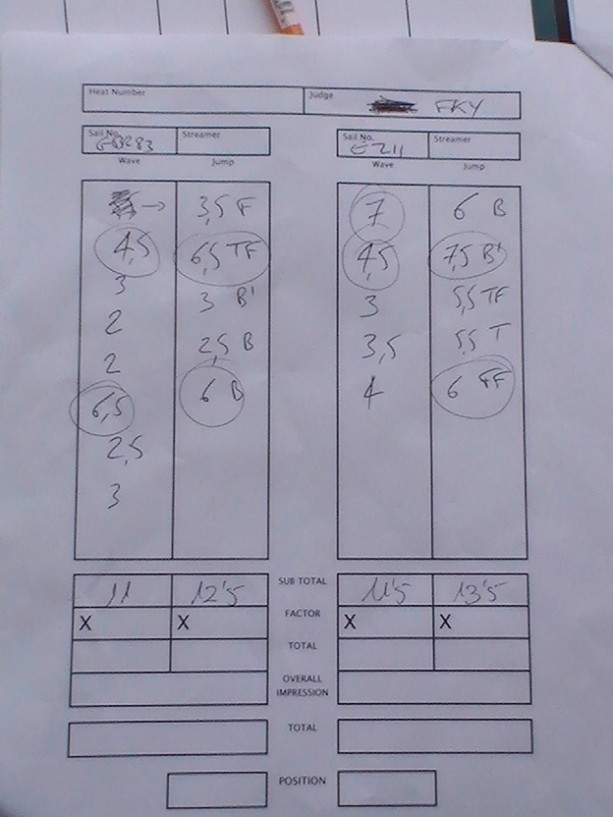 Heat Number Judge FKY
Sail No. Streamer Sail No. Streamer
E-211
Wave Jump Wave Jump
3,5 F 7 6 B
4,5 6,5 TF 4,5 7,5 B'
3 3 B' 3 5,5 TF
2 2,5 B 3,5 5,5 T
2 6 B 4 6 FF
6,5
2,5
3
11 12'5 SUB TOTAL 11'5 13'5
X X FACTOR X X
TOTAL
OVERALL
IMPRESSION
TOTAL
POSITION